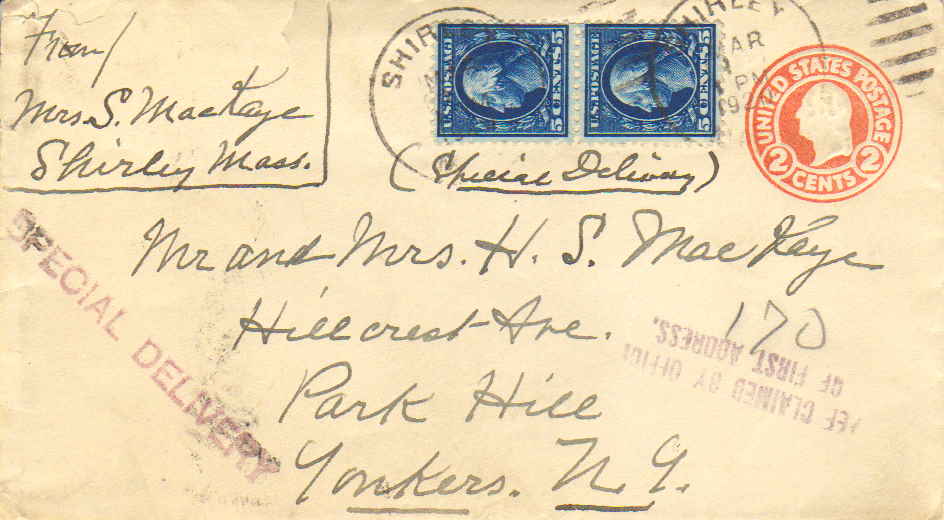 From
Mrs. S. MacKaye
Shirley Mass.
SHIRLEY
U.S. POSTAGE
5 CENTS 5
U.S. POSTAGE
5 CENTS 5
SHIRLEY
MAR
PM
UNITED STATES POSTAGE
2 CENTS 2
(Special Delivery)
SPECIAL DELIVERY
Mr and Mrs. H. S. MacKaye
Hillcrest Ave.
Park Hill
Yonkers. N. Y.
170
FEE CLAIMED BY OFFICE
OF FIRST ADDRESS.